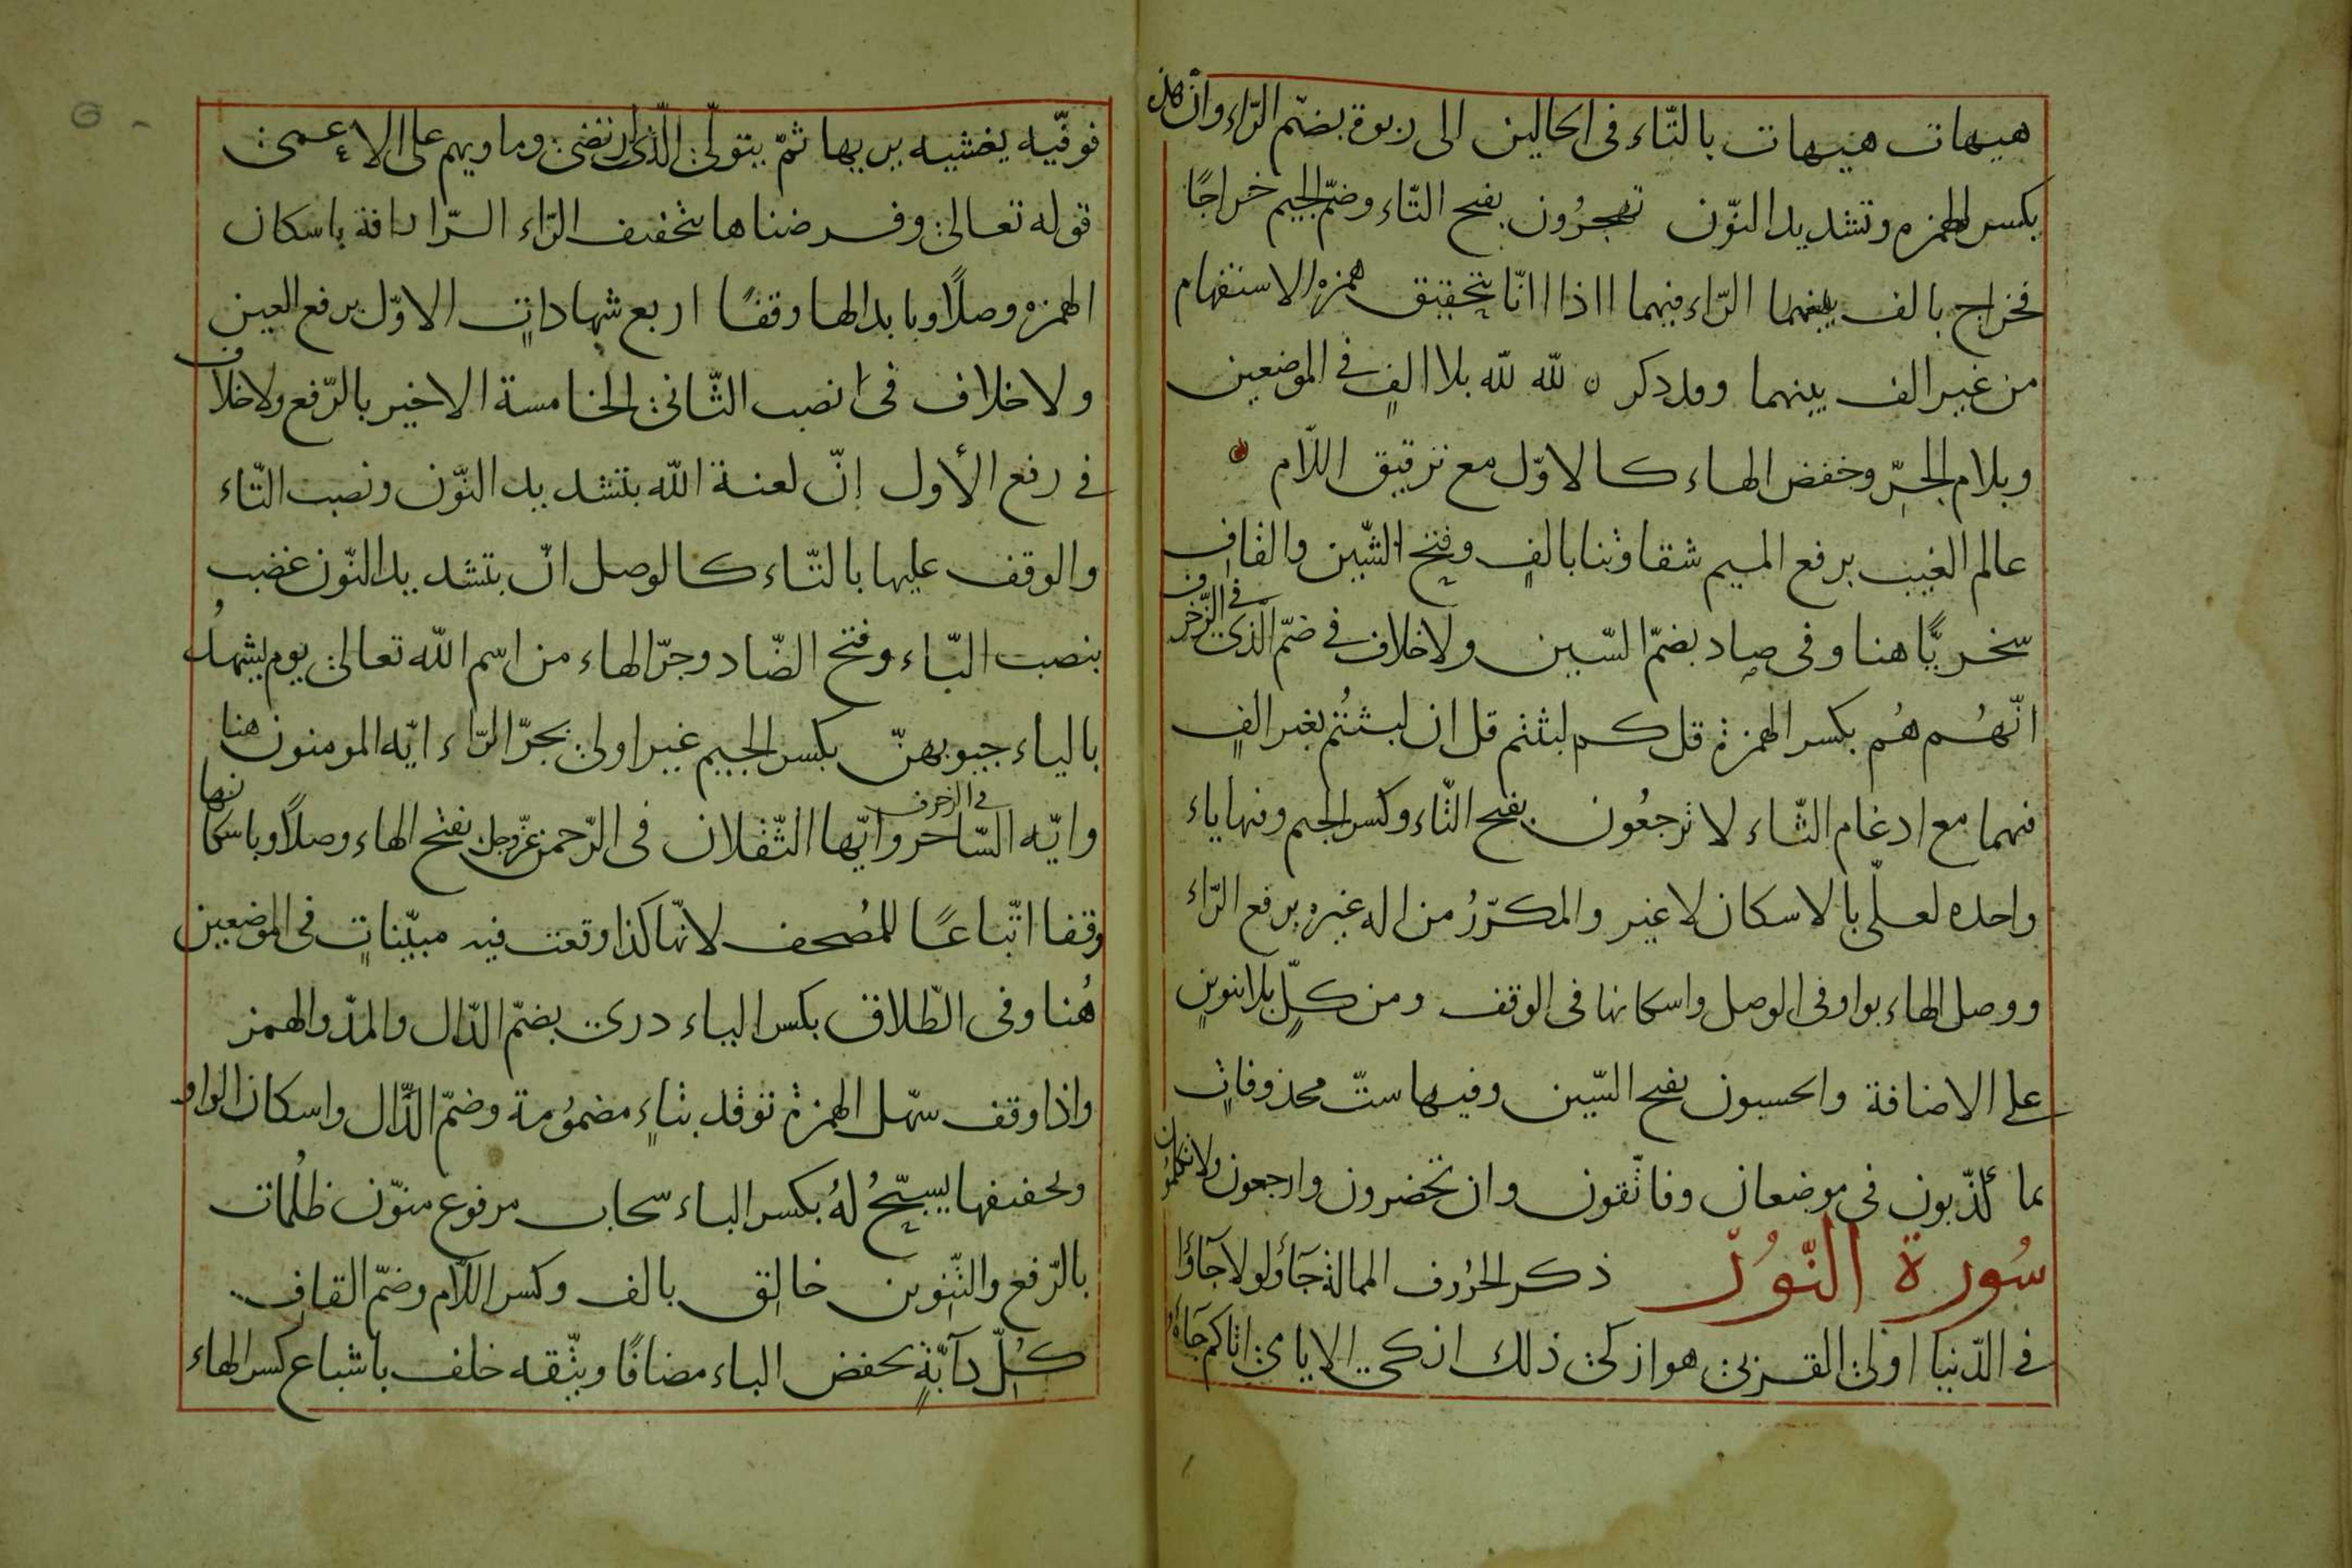 هيهات هيهات بالتّاء فى الحالين الى ربوة بضمّ الرّاء وانّ هذه
بكسر الهمزه وتشديد النّون تهجرُون بفتح التّاء وضمّ الجيم خراجًا
فخراج بالف بينهما الرّاء فيهما ااذا اانّا بتحقيق همزه الاستفهام
من غير الف بينهما وقد ذكر لله لله بلا الفٍ في الموضعين
وبلام الجرّ وخفض الهاء كالاوّل مع ترقيق اللّام
عالم الغيب برفع الميم شقاوتنا بالفٍ وفتح الشّين والقاف
سخريًّا هنا وفى صاد بضمّ السّين ولا خلاف في ضمّ الّذى في الزّخرف
انّهُم هُم بكسر الهمزة قل كم لبثتم قل ان لبثتُم بغير الفٍ
فيهما مع ادغام الثّاء لا ترجعُون بفتح التّاء وكسر الجيم وفيها ياء
واحده لعلّى بالاسكان لا غير والمكرّرُ من اله غيره برفع الرّاء
ووصل الهاء بواو فى الوصل واسكانها فى الوقف ومن كلّ بلا تنوينٍ
على الاضافة والحسبون بفتح السّين وفيها ستّ محذوفاتٍ
بما كذّبون فى موضعان وفاتّقون وان تحضرون وارجعون ولا تكلمُون
سُورة النّوُر ذكر الحرُوف الممالة جَآؤُلولا جَآؤا
في الدّنيا اولى القربى هو ازكى ذلك ازكى الايامى اتاكم جَآءهُ
فوفّيه يغشيه يريها ثمّ يتولّى الّذى ارتضى وماويهم على الاعمى
قوله تعالى وفرضناها بتخفيف الرّاء الرّافة باسكان
الهمزه وصلًا وبابدالها وقفًا اربع شهاداتٍ الاوّل برفع العين
ولا خلاف فى نصب الثّانى الخامسة الاخير بالرّفع ولا خلاف
في رفع الأول إنّ لعنة الله بتشديد النّون ونصب التّاء
والوقف عليها بالتّاء كالوصل انّ بتشديد النّون غضب
بنصب البّاء وفتح الضّاد وجرّ الهاء من اسم الله تعالى يوم يشهدُ
بالياء جيوبهنّ بكسر الجيم غير اولى بجرّ الرّاء ايّه المومنون هنا
وايّه السّاحر في الزخرف وايّها الثّقلان فى الرّحمن عزّ وجل بفتح الهاء وصلًا وباسكانها
وقفا اتّباعًا للمُصحف لانّها كذا وقعت فيه مبيّناتٍ فى الموضعين
هُنا وفى الطّلاق بكسر الياء درى بضمّ الدّال والمدّ والهمز
واذا وقف سهّل الهمزة توقد بتاءٍ مضمُومة وضمّ الدّال واسكان الواو
وتخفيفها يسبّحُ لهُ بكسر الباء سحاب مرفوع منوّن ظلُمات
بالرّفع والتّنوين خالق بالف وكسر اللّام وضمّ القاف
كُلّ دآبّةٍ بخفض الباء مضافًا ويتّقه خلف باشباع كسر الهاء